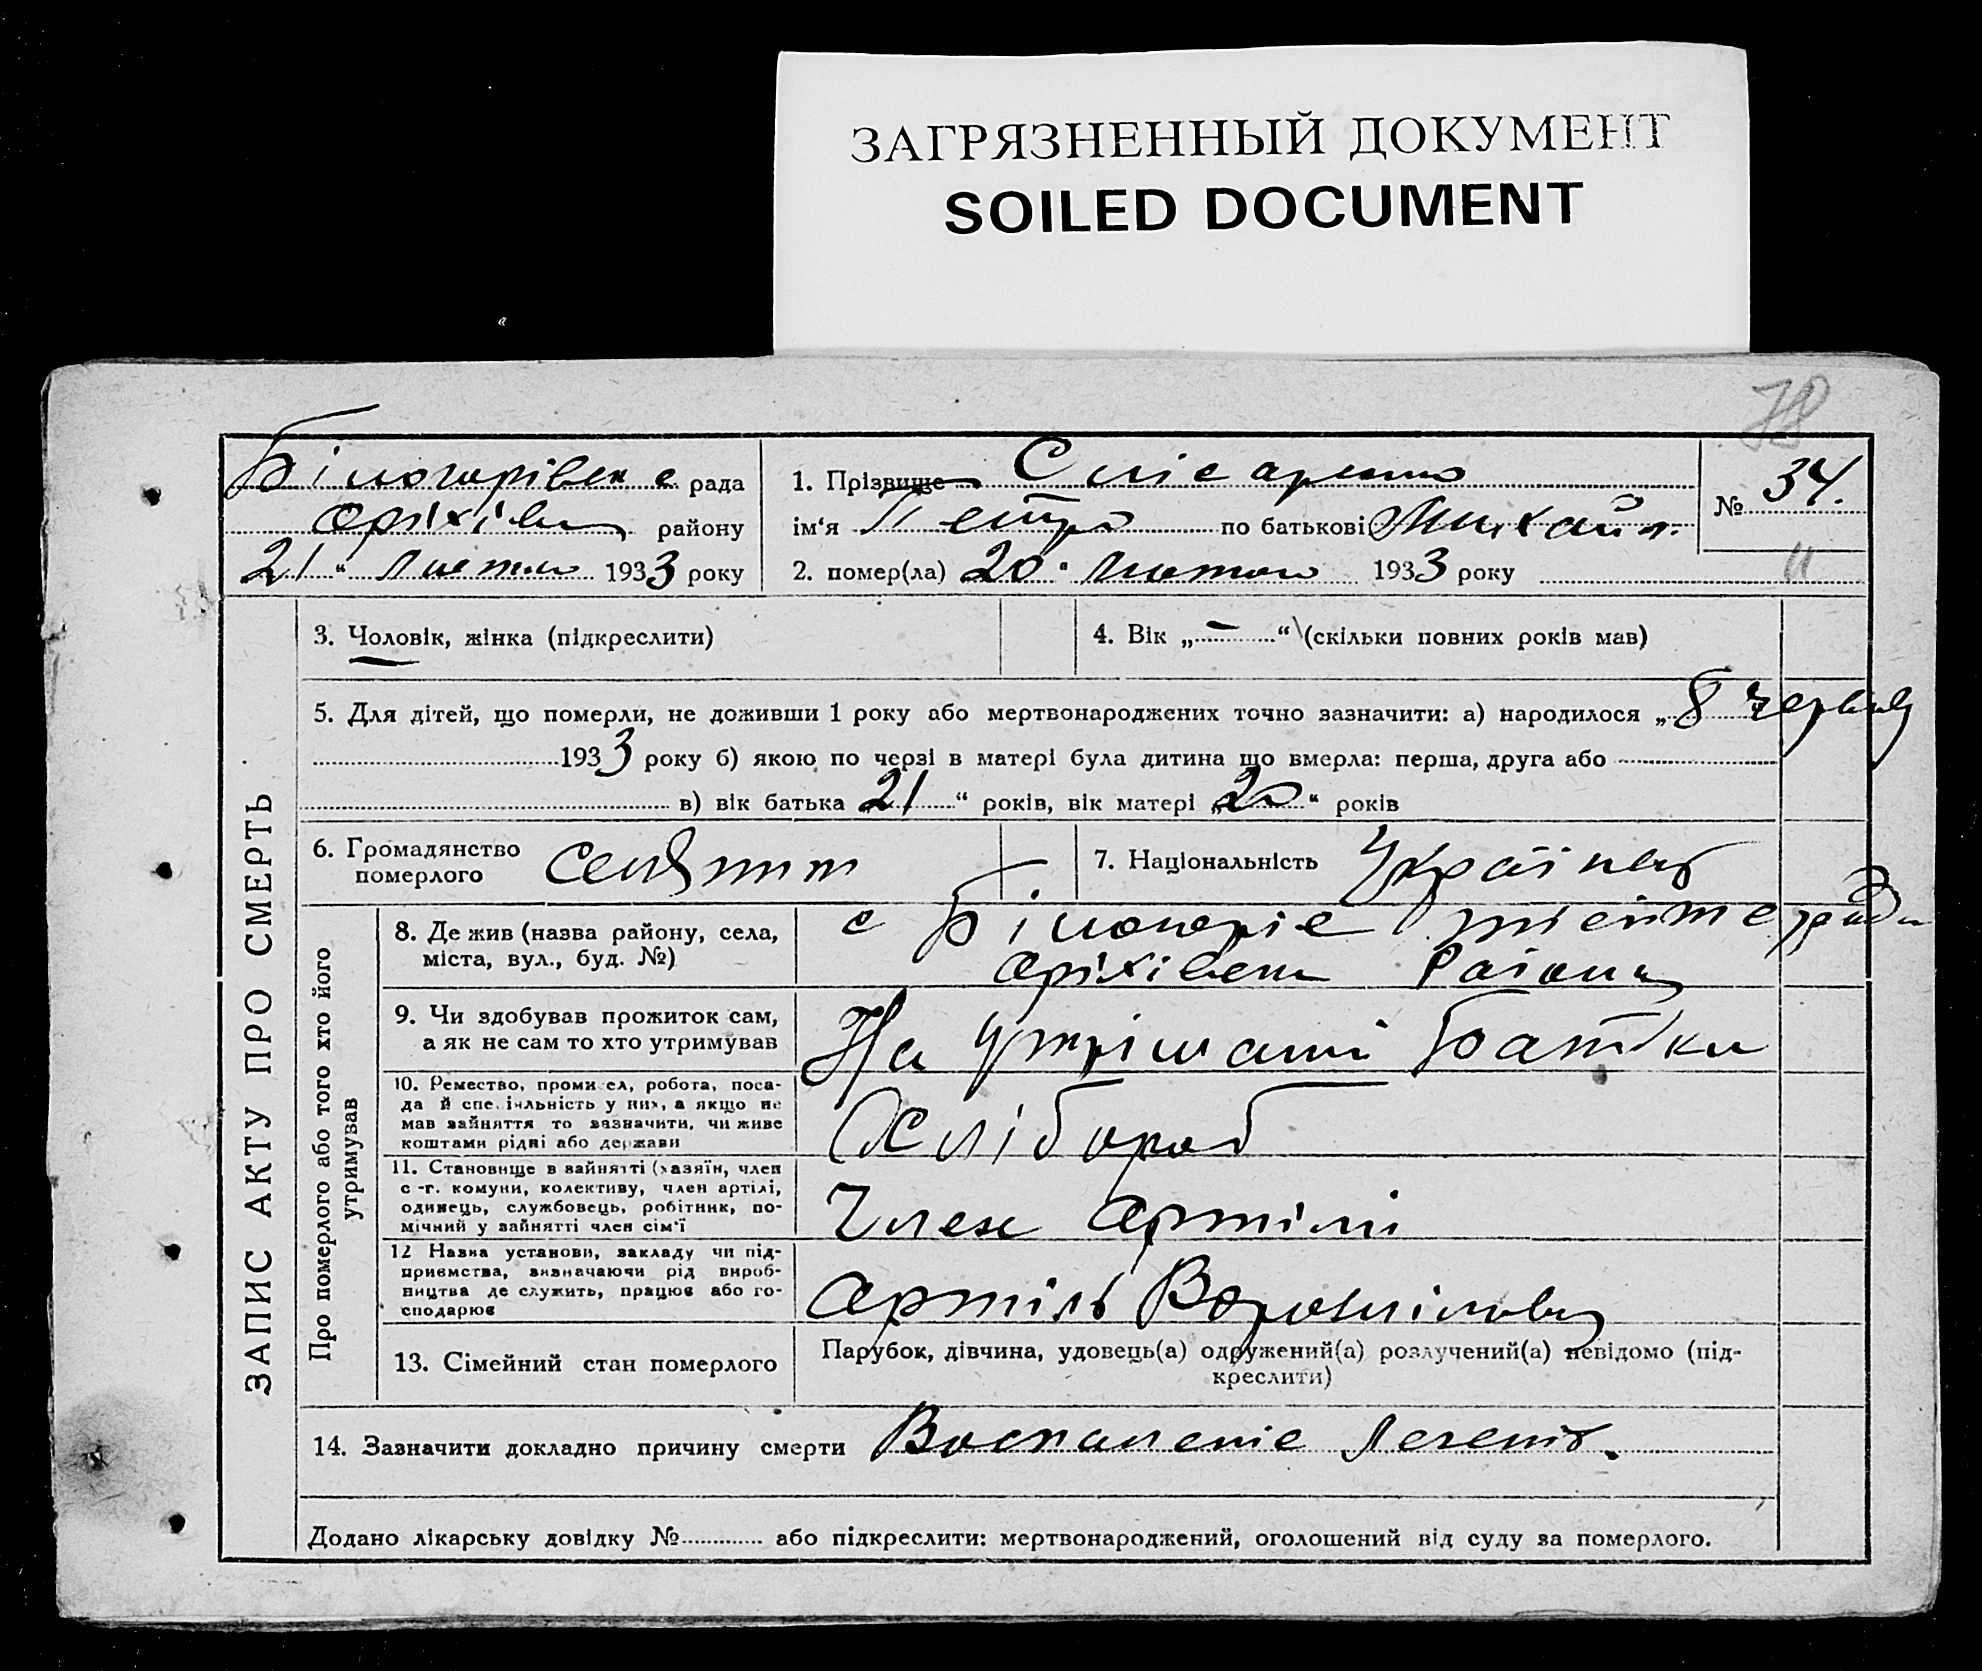 ЗАГРЯЗНЕННЫЙ ДОКУМЕНТ
SOILED DOCUMENT
78
рада
району
21 " лютого 1933 року
1. Прізвище Слісаренко
ім'я Петро по батькові Михайл.
2. помер(ла) 20 " лютого 1933 року
№ 34.
ЗАПИС АКТУ ПРО СМЕРТЬ
3. Чоловік, жінка (підкреслити)
4. Вік „ — “ (скільки повних років мав)
5. Для дітей, що померли, не доживши 1 року або мертвонароджених точно зазначити: а) народилося „ 8 червня
1933 року б) якою по черзі в матері була дитина що вмерла: перша, друга або
в) вік батька „ 21 “ років, вік матері „ 20 “ років
6. Громадянство
померлого
7. Національність Українец
Про померлого або того хто його
утримував
8. Де жив (назва району, села,
міста, вул., буд. №)
с
Оріхівськ Району
9. Чи здобував прожиток сам,
а як не сам то хто утримував
На утрішані Батька
10. Ремество, промисел, робота, поса-
да й спеціяльність у них, а якщо не
мав зайняття то зазначити, чи живе
коштами рідні або держави
Хлібороб
11. Становище в зайнятті (хазяїн, член
с-г. комуни, колективу, член артілі,
одинець, службовець, робітник, по-
мічний у зайнятті член сім'ї
Член Артілі
12 Назва установи, закладу чи під-
приємства, визначаючи рід вироб-
ництва де служить, працює або го-
сподарює
Артіль Ворошілова
13. Сімейний стан померлого
Парубок, дівчина, удовець(а) одружений(а) розлучений(а) невідомо (під-
креслити)
14. Зазначити докладно причину смерти Воспаленіе Легенів.
Додано лікарську довідку № або підкреслити: мертвонароджений, оголошений від суду за померлого.